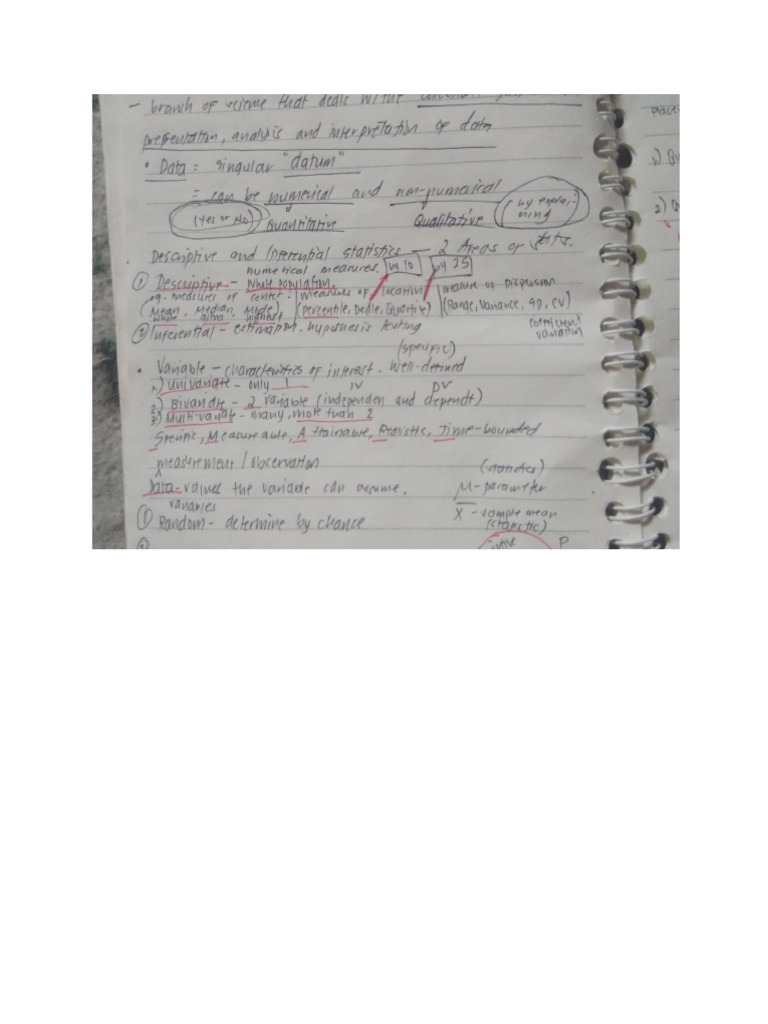 - branch of science that deals with
presentation, analysis and interpretation of data
• Data = singular "datum"
= can be numerical and non-numerical
(Yes or No) Quantitative Qualitative (by explaining)
Descriptive and Inferential statistics - 2 Areas of stats.
numerical measures. by 10 by 25
① Descriptive - whole population.
eg. measures of center. measures of location measure of Dispersion
(Mean, Median, Mode) (Percentile, Decile, Quartile) (Range, Variance, SD, CV)
coefficient variation
② Inferential - estimation. hypothesis testing
(specific)
• Variable - characteristics of interest. Well-defined
1.) Univariate - only 1 IV DV
2.) Bivariate - 2 variable (independen and dependt)
3.) Multi-variate - many, more than 2
Specific, Measureable, Attainable, Realistic, Time-bounded
measurement / observation (statistics)
Data - values the variable can assume. M - parameter
X - sample mean
vararies (statistic)
① Random - determine by chance
P